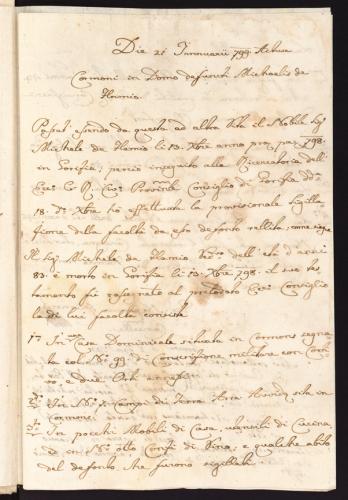 Die 21 Januarii 799. Actum
Cormoni in Domo defuncti Michaelis de
Flamio.
Passat' essendo da questa ad altra Vita il Nobile Sigr
Michele de Flamio li 13. Xbre anno pros. pas. 798.
in Gorizia, percio in seguito alla Ricercatoria dell'
Ecc. Provinle Consiglio di Gorizia dd.
18. do Xbre hò effettuata la provisionale sigilla-
zione della facoltà da esso defonto relitta, come segue
Il Sigr Michele de Flamio dell' età d'anni
80. è morto in Gorizia li 13. Xbre 798. il suo tes-
tamento fù rassegnato al prelodato Ecc. Consiglio
la di lui facoltà consiste
1mo In una Casa Dominicale situata in Cormons segna-
ta col No 99 di Conscrizione militare con Corti-
vo, e due Orti annessi
2do In No Campi di Terra sita in
Cormons.
3zo In pocchi Mobili di Casa, utensili di Cucina,
ed in No otto di Vino, e qualche abito
del defonto, che furono sigillati.